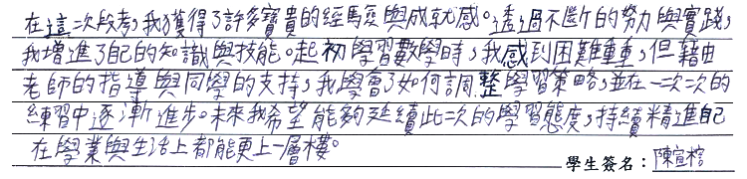 在這次段考,我獲得了許多寶貴的經驗與成就感。透過不斷的努力與實踐,
我增進了自己的知識與技能。起初學習數學時,我感到困難重重,但藉由
老師的指導與同學的支持,我學會了如何調整學習策略,並在一次次的
練習中逐漸進步。未來我希望能夠延續此次的學習態度,持續精進自己
在學業與生活上都能更上一層樓。
學生簽名:陳宣榕